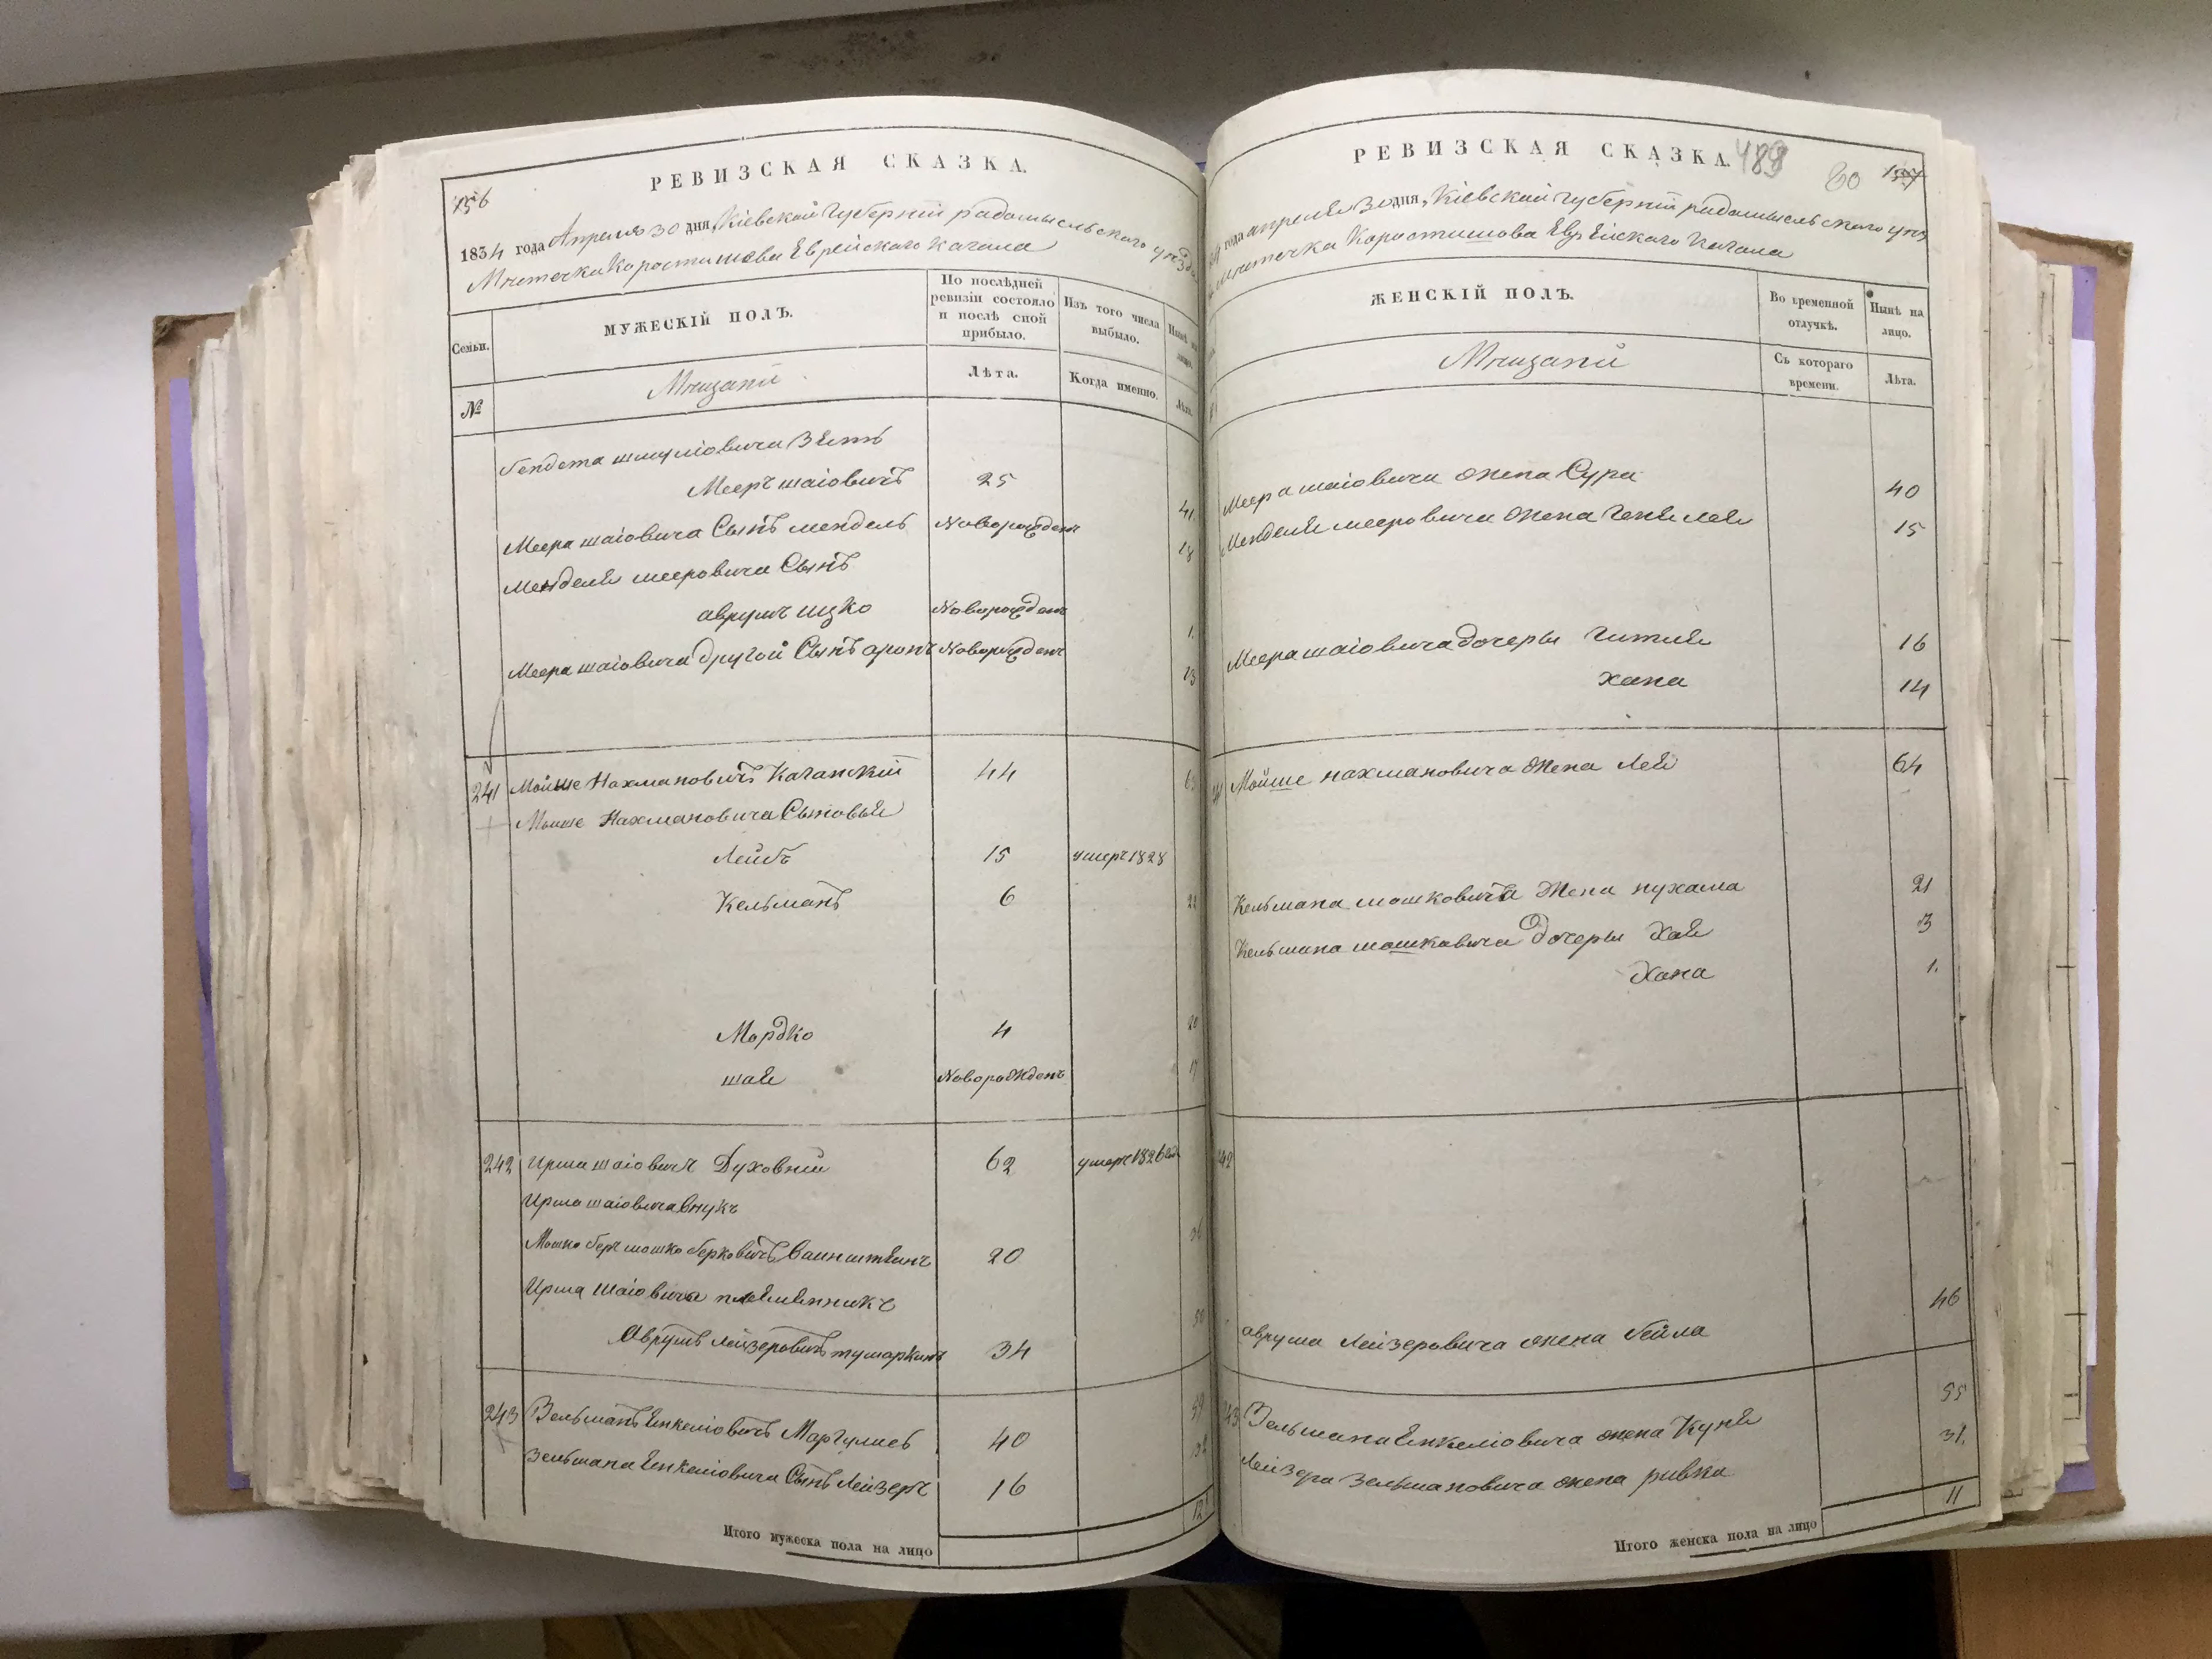 156
РЕВИЗСКАЯ СКАЗКА.
1834 года Апреля 30 дня, Кіевской Губерніи радомысльского уезда
Местечка Коростишева Еврейского Кагала
Семьи.
МУЖЕСКІЙ ПОЛЪ.
По послѣдней ревизіи состояло и послѣ оной прибыло.
Изъ того числа выбыло.
Нынѣ на лицо.
№
Мещане
Лѣта.
Когда именно.
Лѣта.
шмуліовича зять
Мееръ шаіовичъ 25 41
Меера шаіовича Сынъ мендель Новорожденъ 18
Менделя мееровича Сынъ
аврумъ ицко Новорожденъ 1.
Меера шаіовича другой Сынъ аронъ Новорожденъ 13
241 Мойше Нахмановичъ Каганскій 44
Мошке Нахмановича Сыновья
Лейбъ 15 умеръ 1828
Кельманъ 6 22
Мордко 4 20
шая Новорожденъ 17
242 Ирша шаіовичъ Духовній 62 умеръ 1826
Ирша шаіовича внукъ
Мошко беръ мошко берковичъ Ваинштеинъ 20 36
Ирша шаіовича племенникъ
Аврумъ Лейзеровичъ 34 50
243 Зельманъ Енкеліовичъ Маргулисъ 40
Зельмана Енкеліовича Сынъ Лейзеръ 16
Итого мужеска пола на лицо 12
РЕВИЗСКАЯ СКАЗКА.
489
60
157
года апреля 30 дня, Кіевской Губерніи радомысльского
местечка Коростишова Еврейского Кагала
ЖЕНСКІЙ ПОЛЪ.
Во временной отлучкѣ.
Нынѣ на лицо.
Мещане
Съ котораго времени.
Лѣта.
Меера шаіовича жена Сура 40
Менделя мееровича жена 15
Меера шаіовича дочеры Гитля 16
хана 14
Мойше нахмановича жена Лея 64
Кельмана мошковича жена нухама 21
Кельмана мошковича дочеры Хая 3
Хана 1.
242
аврума Лейзеровича жена бейла 46
243 Зельмана Енкеліовича жена Куня 55
Лейзера Зельмановича жена ривка 31.
Итого женска пола на лицо 11